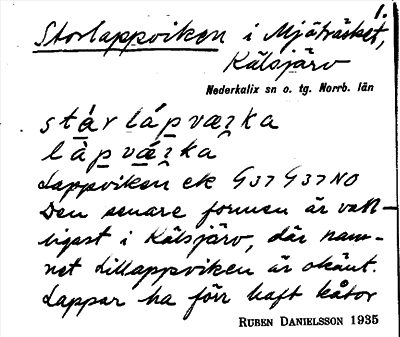 1.
Storlappviken i Mjöträsket,
Kälsjärv
Nederkalix sn o. tg. Norrb. län
stár lápvæʒka
làpvǽʒka
Lappviken ek G37 G37 NO
Den senare formen är van-
ligast i Kälsjärv, där nam-
net Lillappviken är okänt.
Lappar ha förr haft kåtor
RUBEN DANIELSSON 1935